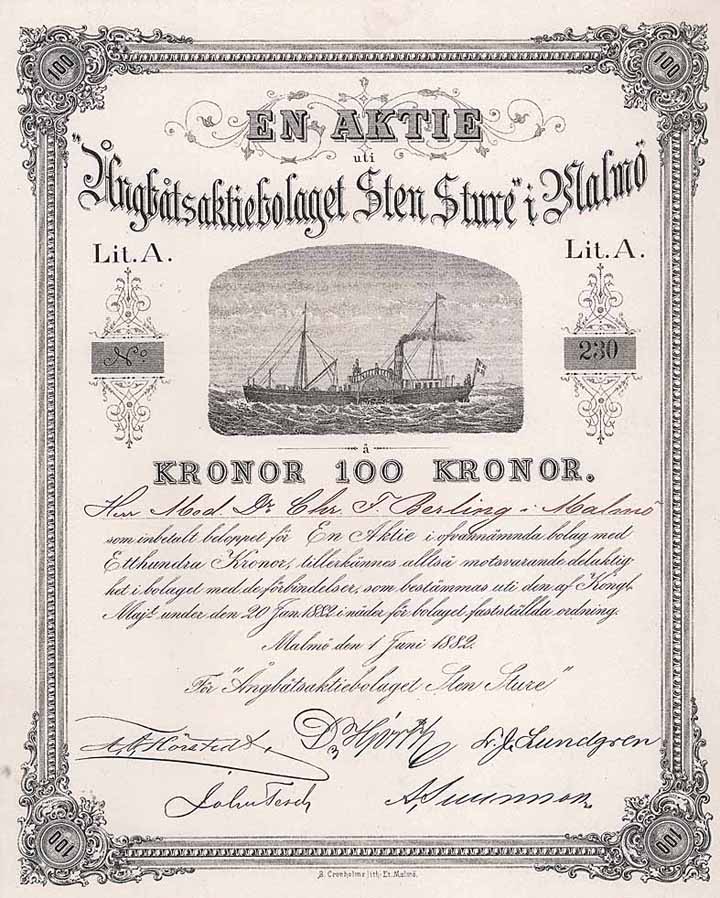 100 100
EN AKTIE
uti
"Ångbåtsaktiebolaget Sten Sture" i Malmö
Lit. A. Lit. A.
No 230
à
KRONOR 100 KRONOR.
Herr Med. Dr Chr. F. Berling i Malmö
som inbetalt beloppet för En Aktie i ofvannämnda bolag med
Etthundra Kronor, tillerkännes alltså motsvarande delaktig
het i bolaget med de förbindelser, som bestämmas uti den af Kongl.
Majt under den 20 Jan. 1882 i nåder för bolaget fastställda ordning.
Malmö den 1 Juni 1882.
För "Ångbåtsaktiebolaget Sten Sture"
Lundgren
John Tesch
100 100
B. Cronholms lith. Et. Malmö.